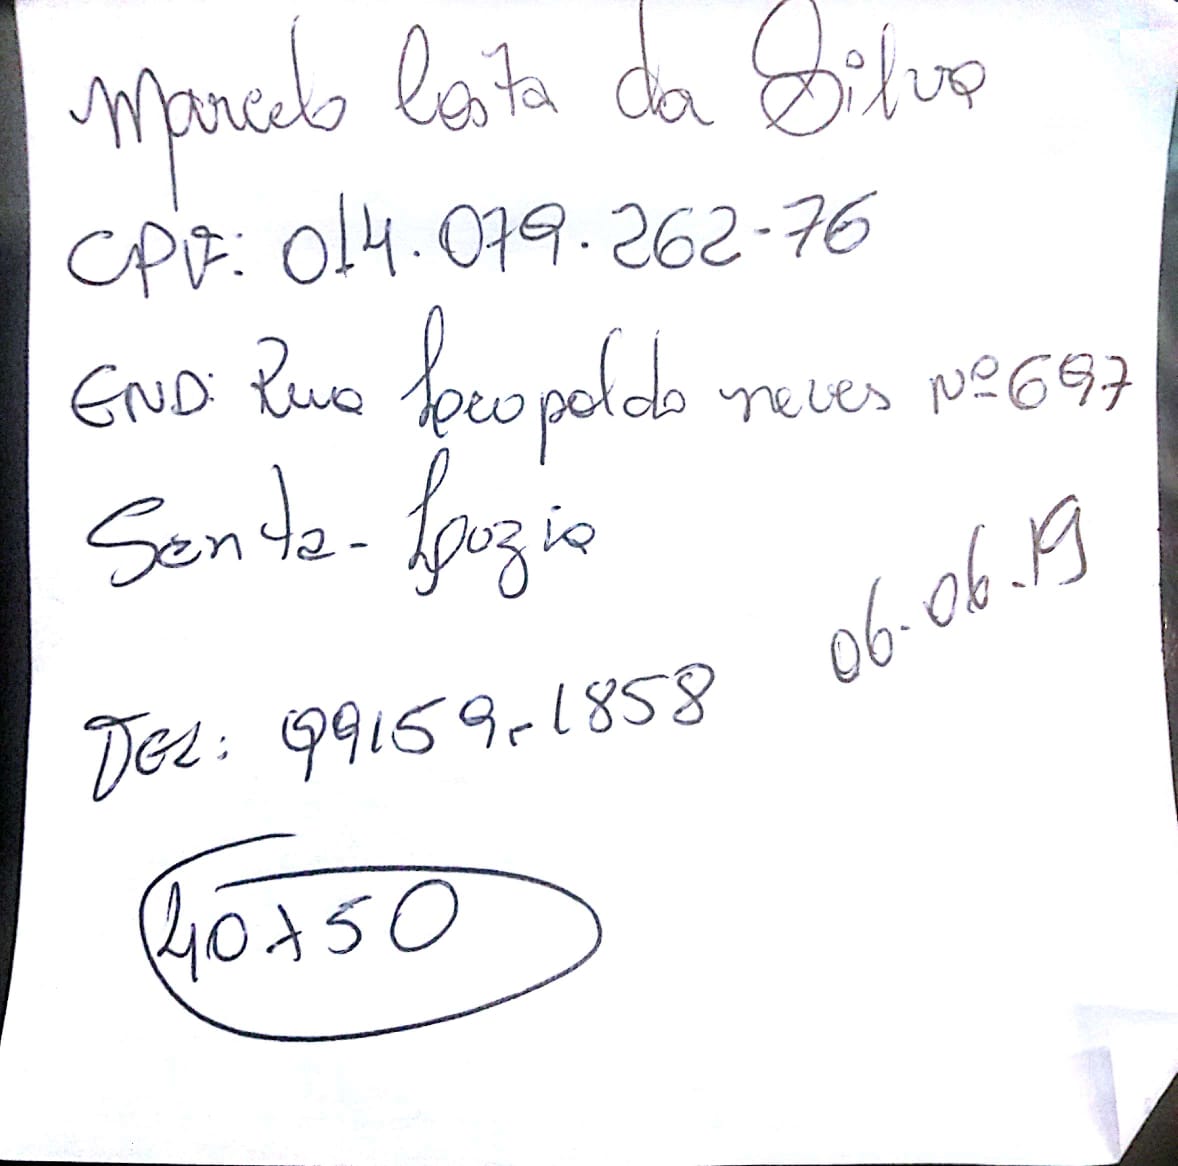 Marcelo Costa da Silva
CPF: 014.079.262-76
END: Rua Leopoldo neves Nº 697
Santa-Luzia
06.06.19
TEL: 99159-1858
40x50